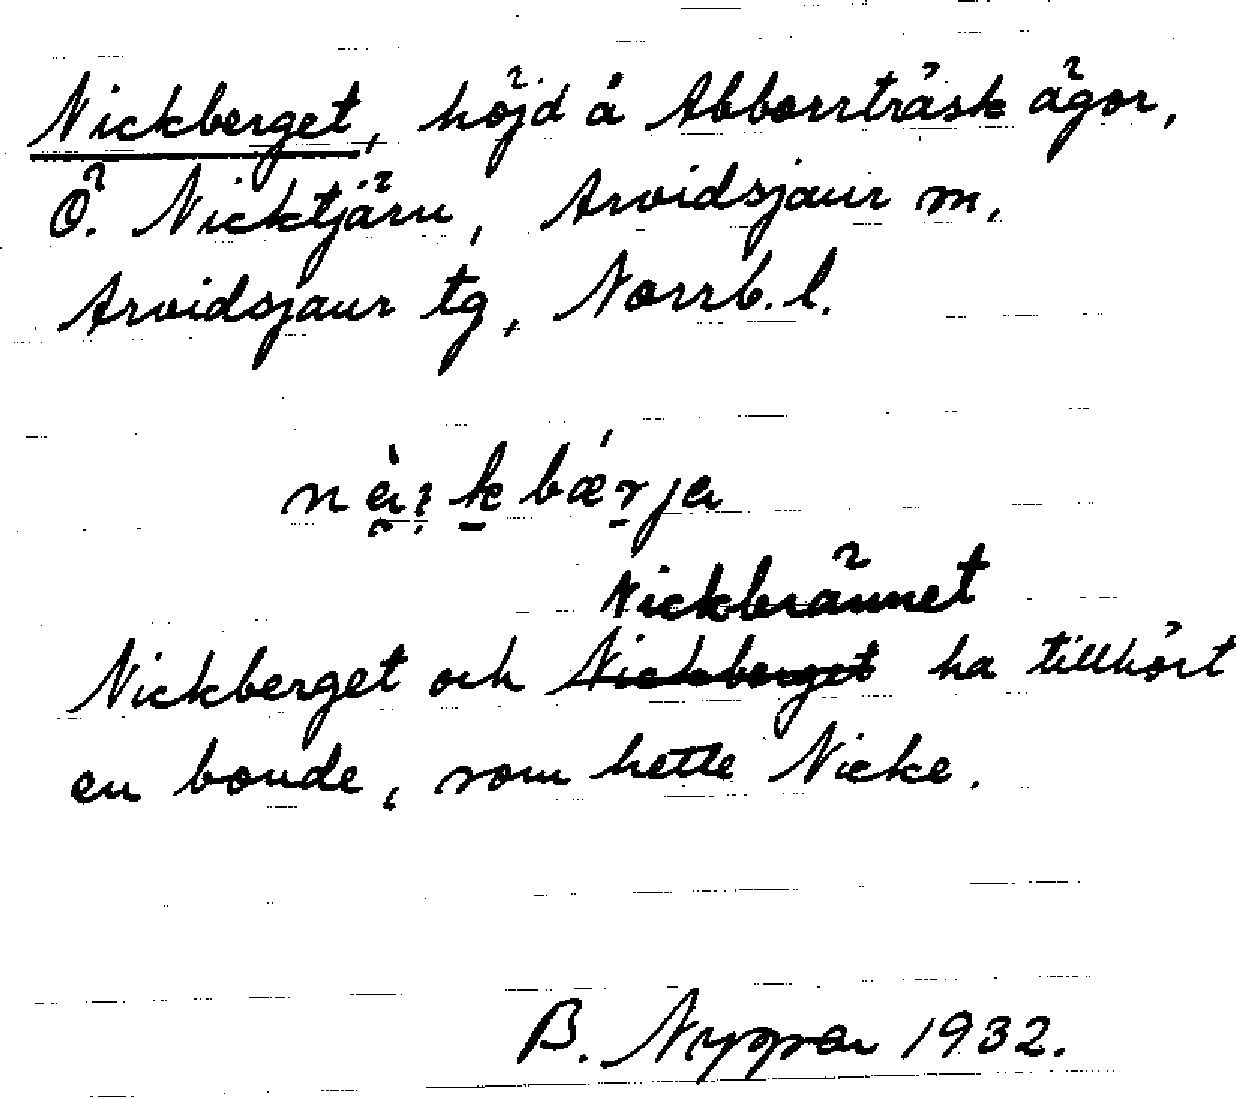 Nickberget, höjd å Abborrträsk ägor,
Ö. Nicktjärn, Arvidsjaur m,
Arvidsjaur tg, Norrb. l.
Nickbrännet
Nickberget och Nickberget ha tillhört
en bonde, som hette Nicke.
B. 1932.